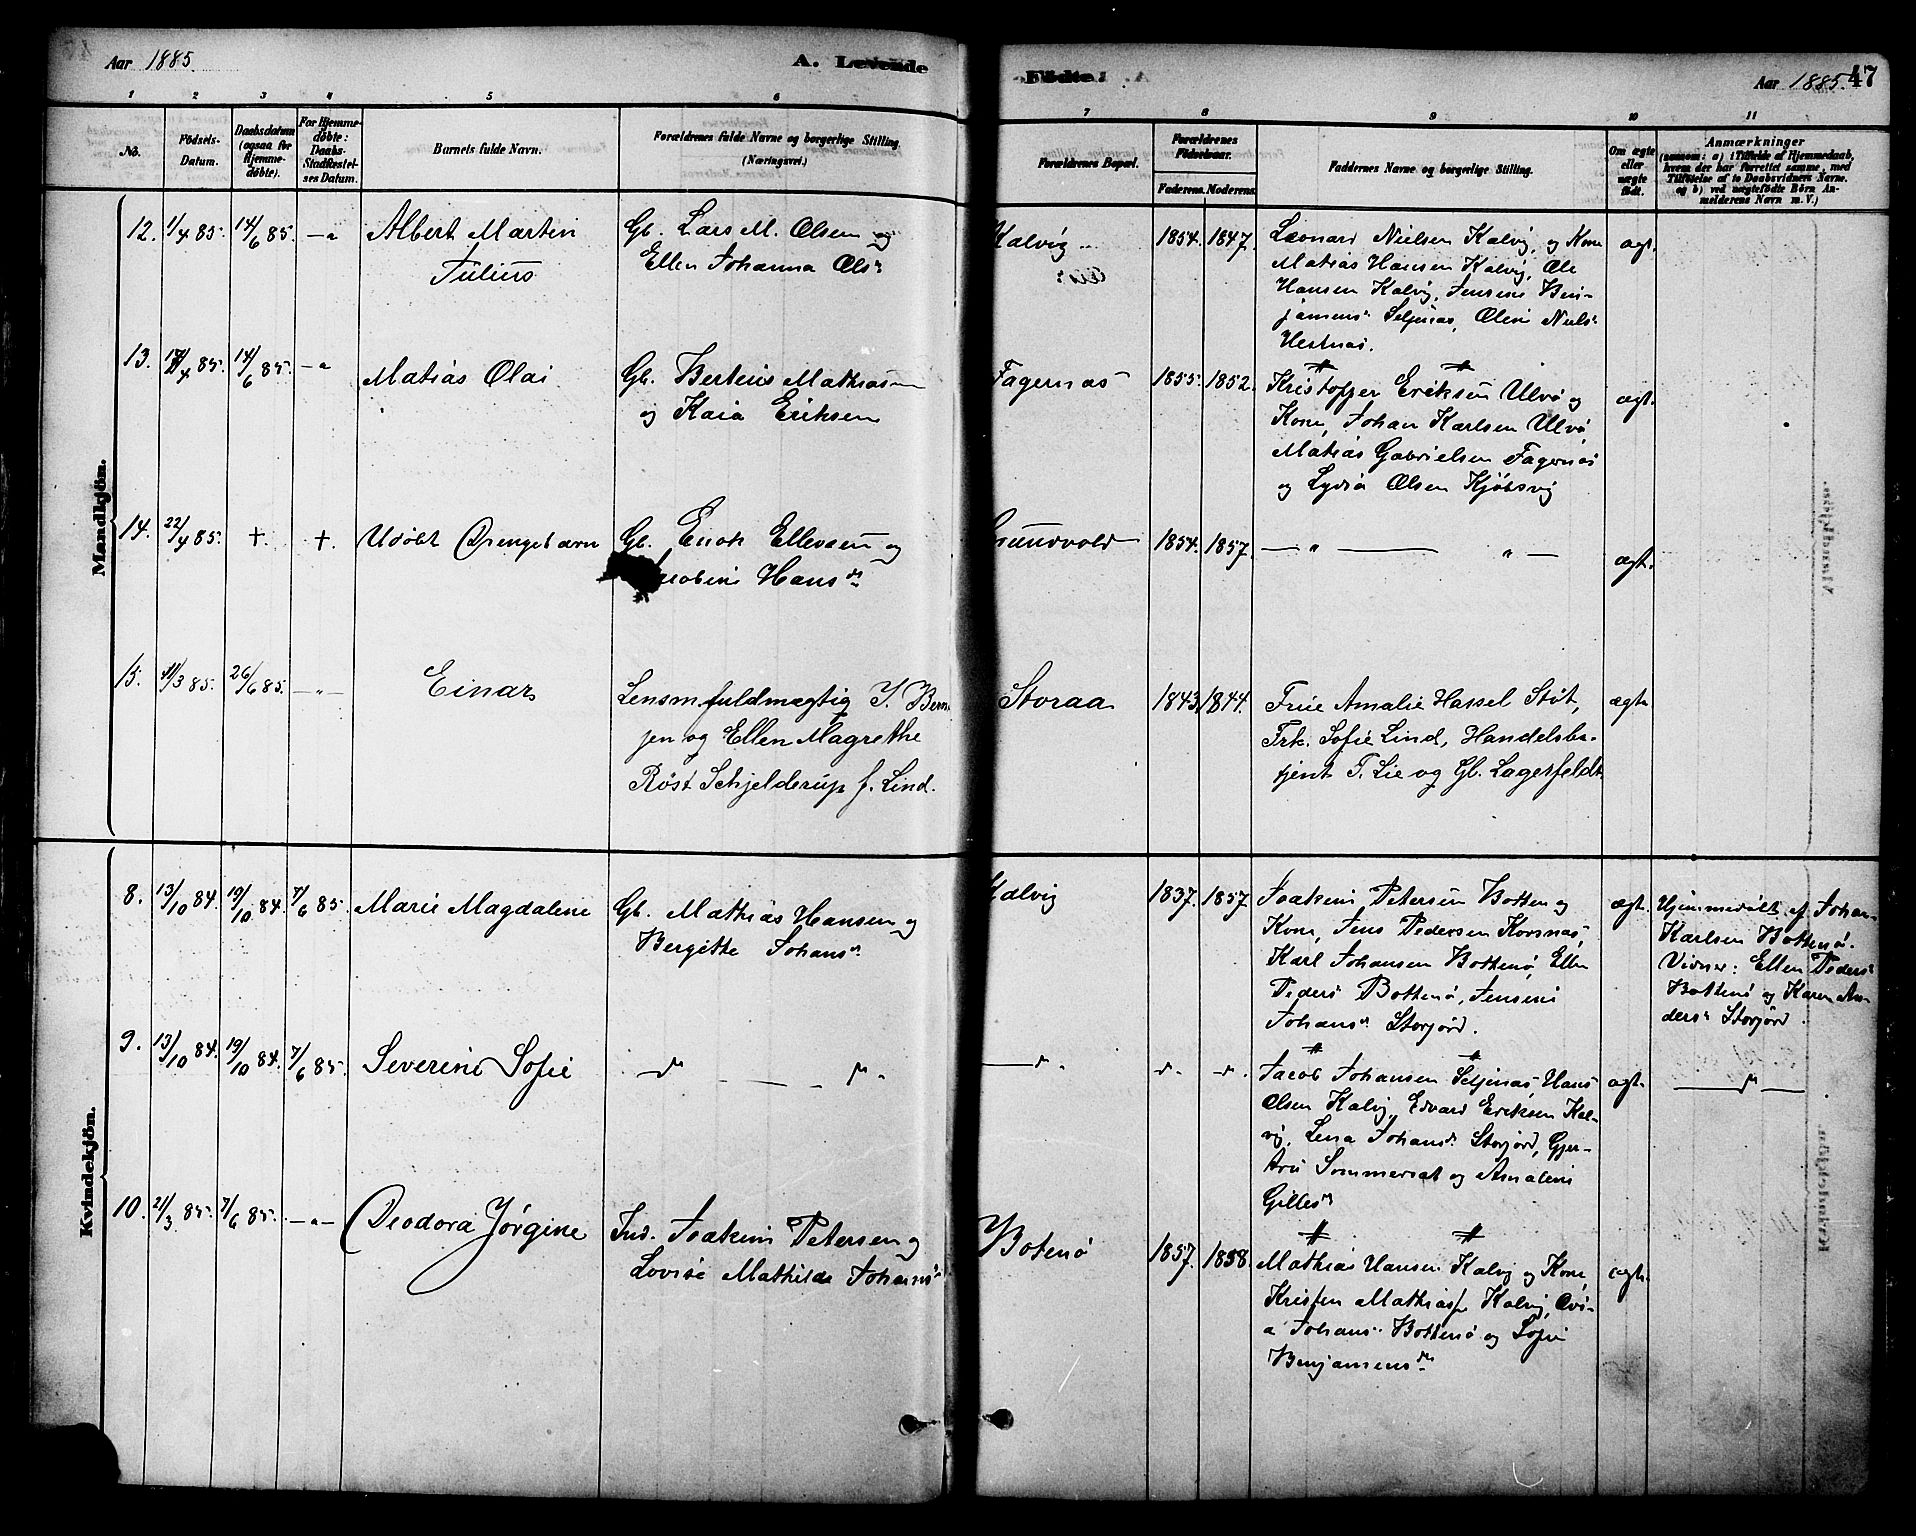 Aar 1885.
A. Levende
Fødte.
Aar 1885.
47
1 2 3 4 5 6 7 8 9 10 11
No.
Fødsels-
Datum.
Daabsdatum
(ogsaa for
Hjemme-
døbte).
For Hjemme-
døbte:
Daabs-
Stadfæstel-
ses Datum.
Barnets fulde Navn.
Forældrenes fulde Navne og borgerlige Stilling.
(Næringsvei.)
Forældrenes Bopæl.
Forældrenes
Fødselsaar.
Faderens. Moderens.
Faddernes Navne og borgerlige Stilling.
Om ægte
eller
uægte
født.
Anmærkninger
(saasom: a) i Tilfælde af Hjemmedaab,
hvem der har forrettet samme, med
Tilføielse af to Daabsvidners Navne.
og b) ved uægtefødte Børn An-
melderens Navn m. V.)
Mandkjön.
12. 1/4 85. 14/6 85. —"
Albert Martin
Julius
Gb. Lars M. Olsen og
Ellen Johanna Olsd
Kalvig
1854. 1847.
Leonard Nielsen Kalvig, og Kone
Matias Hansen Kalvig, Ole
Hansen Kalvig, Jensine Ben-
jamens Seljenæs, Oline Niels
Hestnæs.
ægt.
13. 17/4 85. 14/6 85. —"
Matias Olai
Gb. Berteus Mathiasen
og Kaia Eriksen
Fagernæs
1855. 1852.
Kristoffer Eriksen Ulvø og
Kone, Johan Karlsen Ulvø,
Matias Gabrielsen Fagernæs
og Lydia Olsen Kjøbsvig
ægt.
14. 22/4 85. +. +.
Udøbt Drengebarn
Gb. Enok Ellevsen og
Jacobine Hansd
Grundvold
1854. 1857.
— " — " —
ægt.
15. 11/3 85. 26/6 85. —"—
Einar
Lensm.fuldmægtig J. Bern-
jen og Ellen Magrethe
Røst Schjelderup f. Lind.
Storaa
1843. 1844.
Frue Amalie Hassel Støt,
Frk. Sofie Lind, Handelsbe-
tjent T. Lie og Gb. Lagerfeldt
ægte
Kvindekjön.
8. 13/10 84. 19/10 84. 7/6 85.
Marie Magdalene
Gb. Mathias Hansen og
Bergitte Johansd
Kalvig
1837. 1857.
Joakim Petersen Botten og
Kone, Jens Pedersen Korsnæs,
Karl Johansen Bottenø, Ellen
Peders Bottenø, Jensine
Johansd Storjord.
ægt.
Hjemmedøbt af Johan
Karlsen Bottenø.
Vidner: Ellen Peders
Bottenø og Karen An-
ders Storjord.
9. 13/10 84. 19/10 84. 7/6 85.
Severine Sofie
— " — — " .
— " .
" . " .
Jacob Johansen Seljenæs, Hans
Olsen Kalvig, Edvard Eriksen Kal-
vig, Lena Johansd Storjord, Gjer-
tru Sommerset og Amaline
Gillesd
ægt.
— " —
10. 21/3 85. 7/6 85. —"—
Deodora Jørgine
Ind. Joakim Petersen og
Lovise Mathilde Johansd
Botenø
1857. 1858.
Mathias Hansen Kalvig og Kone,
Kristen Mathiasf Kalvig, Ovi-
a Johans Bottenø og Sofie
Benjamensd
ægt.